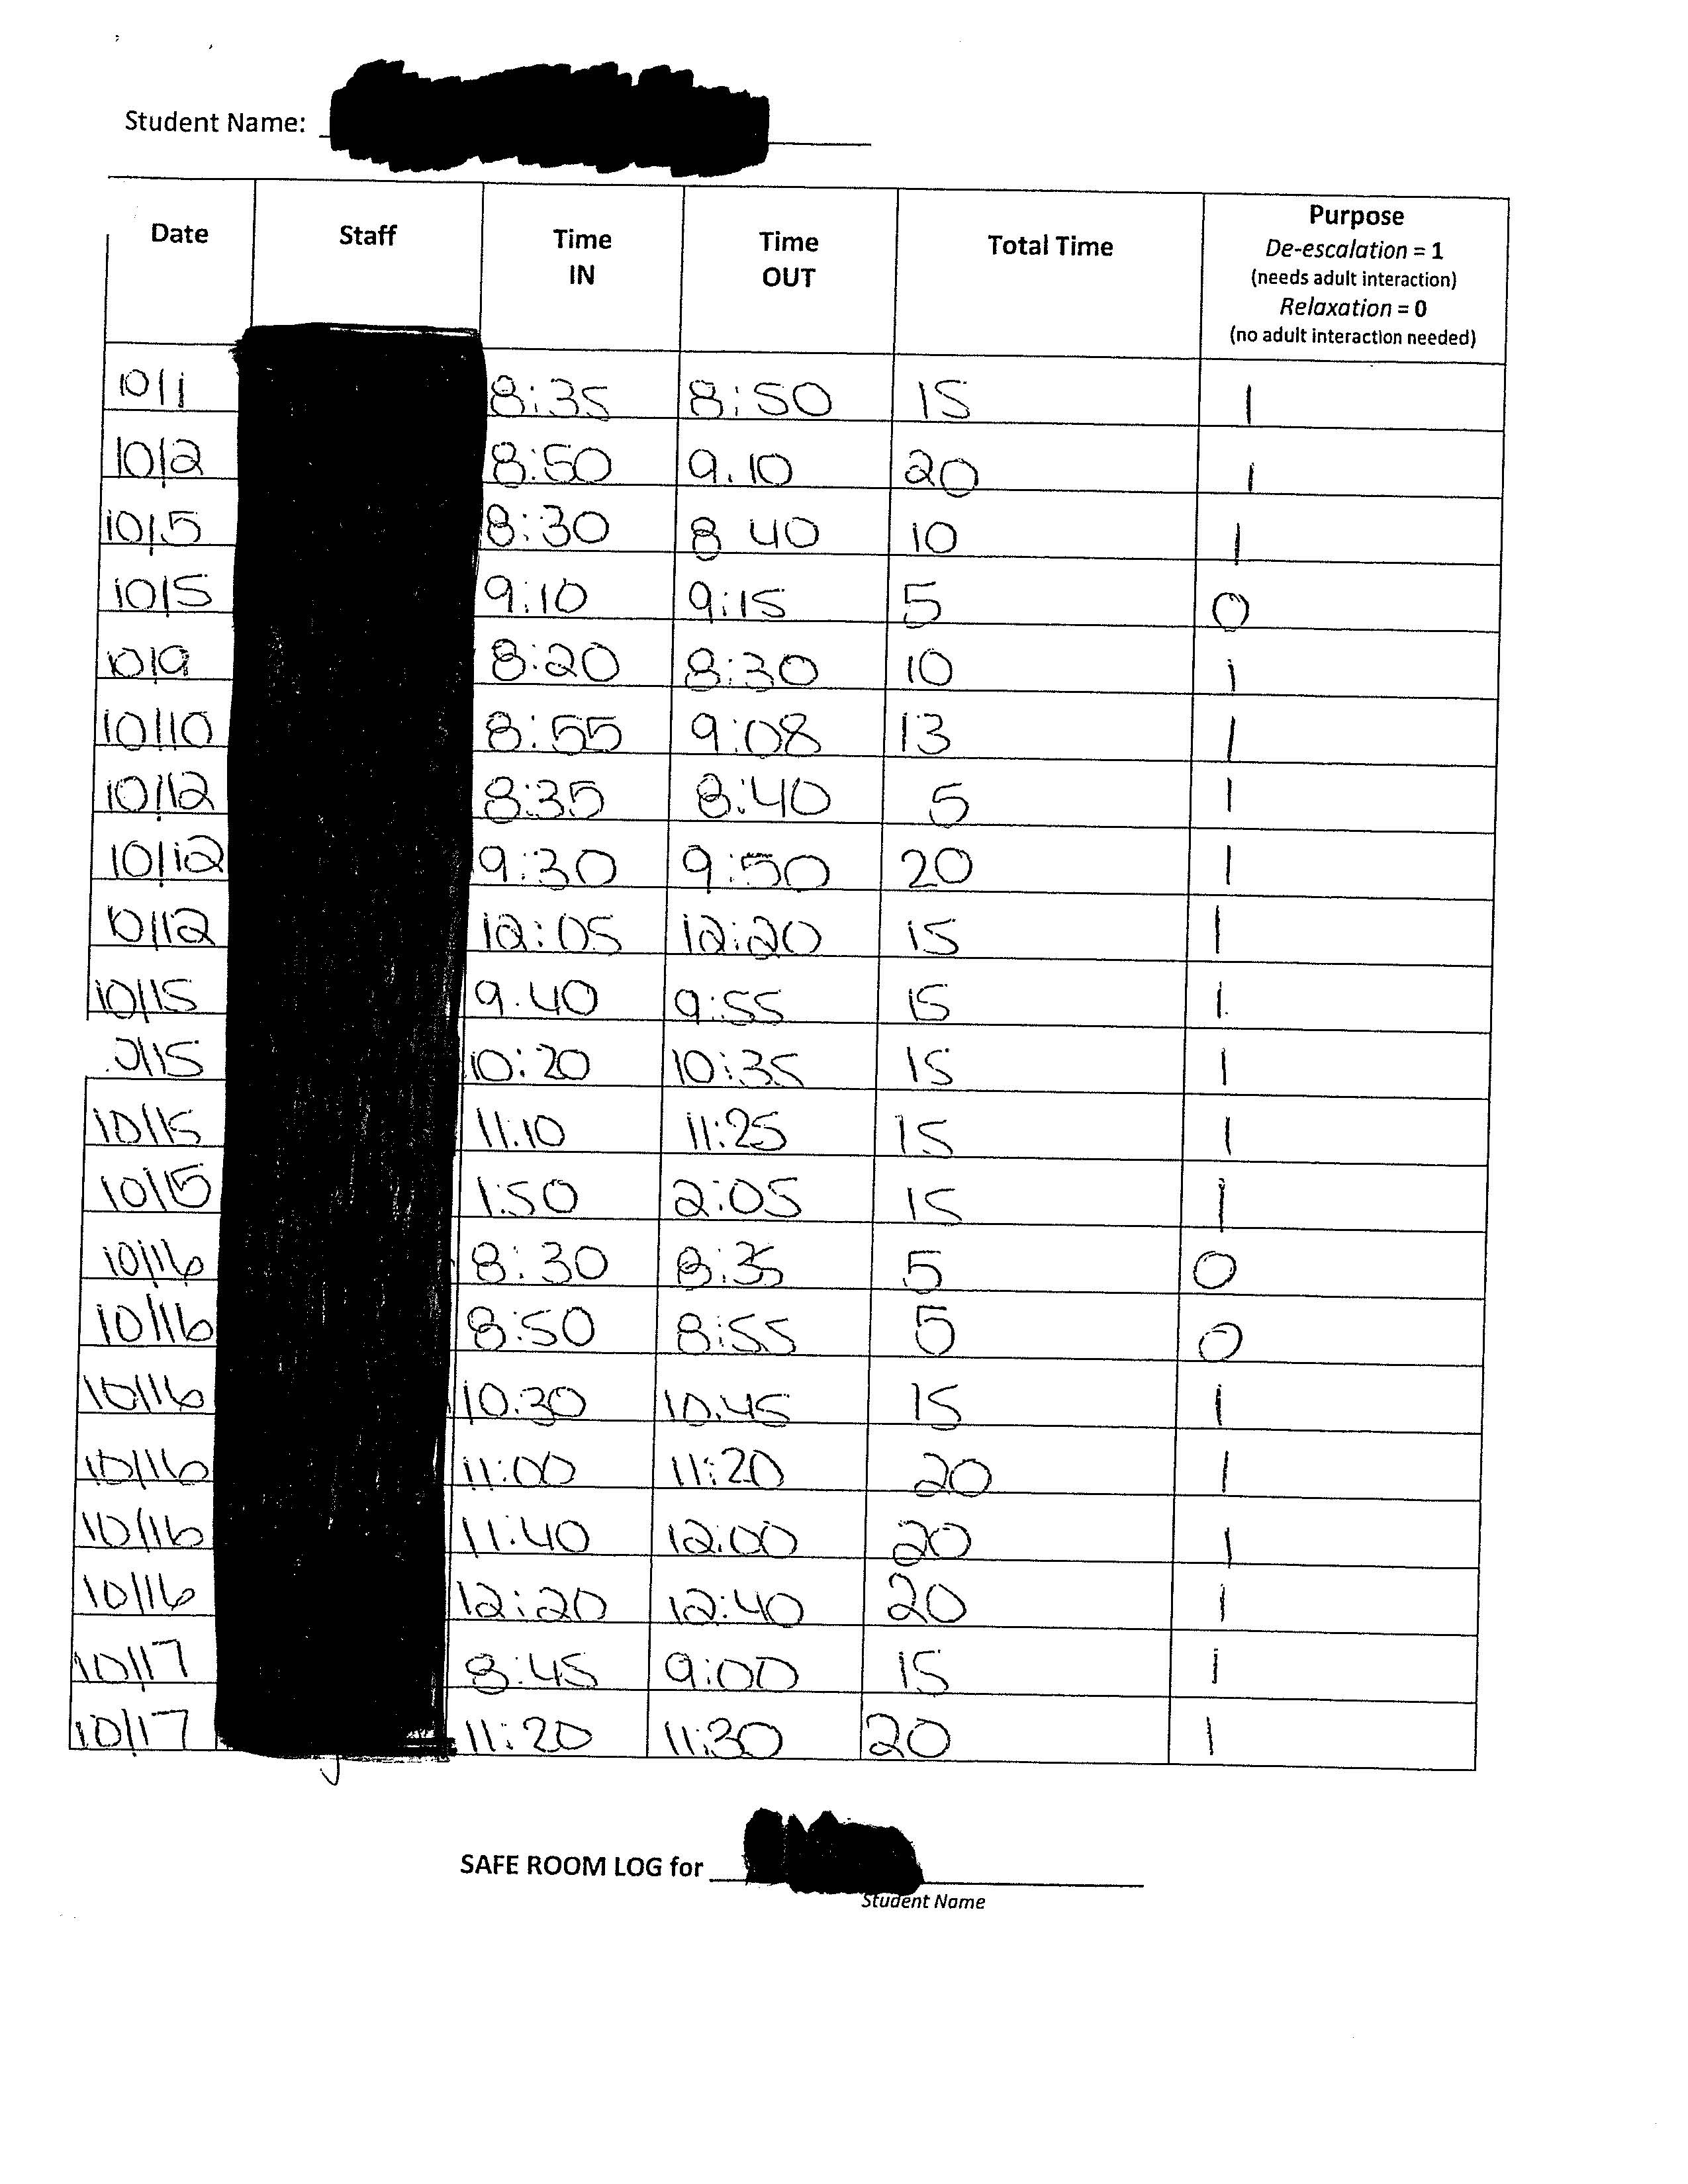 Student Name:
Date Staff Time IN Time OUT Total Time Purpose
De-escalation = 1
(needs adult interaction)
Relaxation = 0
(no adult interaction needed)
10/1 8:35 8:50 15 1
10/2 8:50 9.10 20 1
10/5 8:30 8 40 10 1
10/5 9:10 9:15 5 0
10/9 8:20 8:30 10 1
10/10 8:55 9:08 13 1
10/12 8:35 8:40 5 1
10/12 9:30 9:50 20 1
10/12 12:05 12:20 15 1
10/15 9.40 9:55 15 1
0/15 10:20 10:35 15 1
10/15 11:10 11:25 15 1
10/15 1:50 2:05 15 1
10/16 8:30 8:35 5 0
10/16 8:50 8:55 5 0
10/16 10:30 10:45 15 1
10/16 11:00 11:20 20 1
10/16 11:40 12:00 20 1
10/16 12:20 12:40 20 1
10/17 8:45 9:00 15 1
10/17 11:20 11:30 20 1
SAFE ROOM LOG for
Student Name